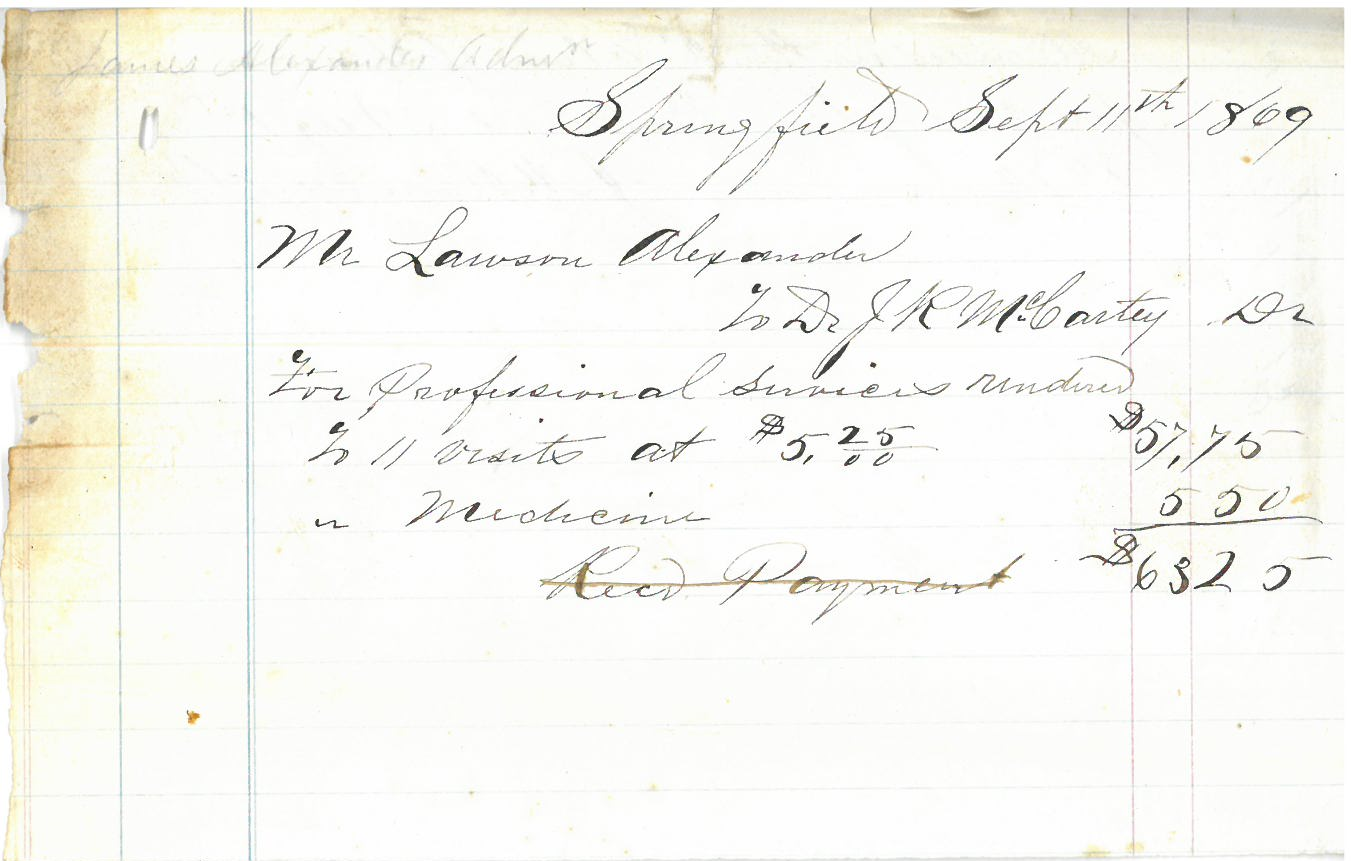 James Alexander Admr
Springfield Sept 11th 1869
Mr Lawson Alexander
To Dr J K McCartey Dr
For Professional Services rendered
To 11 visits at $5,25/00 $57,75
" Medicine 5 50
Recd Payment $63 25